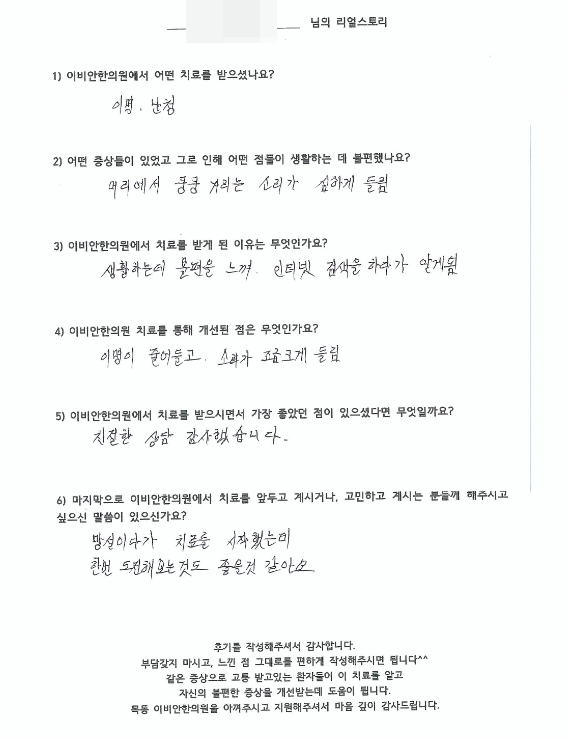 님의 리얼스토리
1) 이비안한의원에서 어떤 치료를 받으셨나요?
이명, 난청
2) 어떤 증상들이 있었고 그로 인해 어떤 점들이 생활하는 데 불편했나요?
머리에서 쿵쿵 거리는 소리가 심하게 들림
3) 이비안한의원에서 치료를 받게 된 이유는 무엇인가요?
생활하는데 불편을 느껴. 인터넷 검색을 하다가 알게됨
4) 이비안한의원 치료를 통해 개선된 점은 무엇인가요?
이명이 줄어들고. 소리가 조금크게 들림
5) 이비안한의원에서 치료를 받으시면서 가장 좋았던 점이 있으셨다면 무엇일까요?
친절한 상담 감사했습니다.
6) 마지막으로 이비안한의원에서 치료를 앞두고 계시거나, 고민하고 계시는 분들께 해주시고
싶으신 말씀이 있으신가요?
망설이다가 치료를 시작했는데
한번 도전해보는것도 좋을것 같아요
후기를 작성해주셔서 감사합니다.
부담갖지 마시고, 느낀 점 그대로를 편하게 작성해주시면 됩니다^^
같은 증상으로 고통 받고있는 환자들이 이 치료를 알고
자신의 불편한 증상을 개선받는데 도움이 됩니다.
목동 이비안한의원을 아껴주시고 지원해주셔서 마음 깊이 감사드립니다.